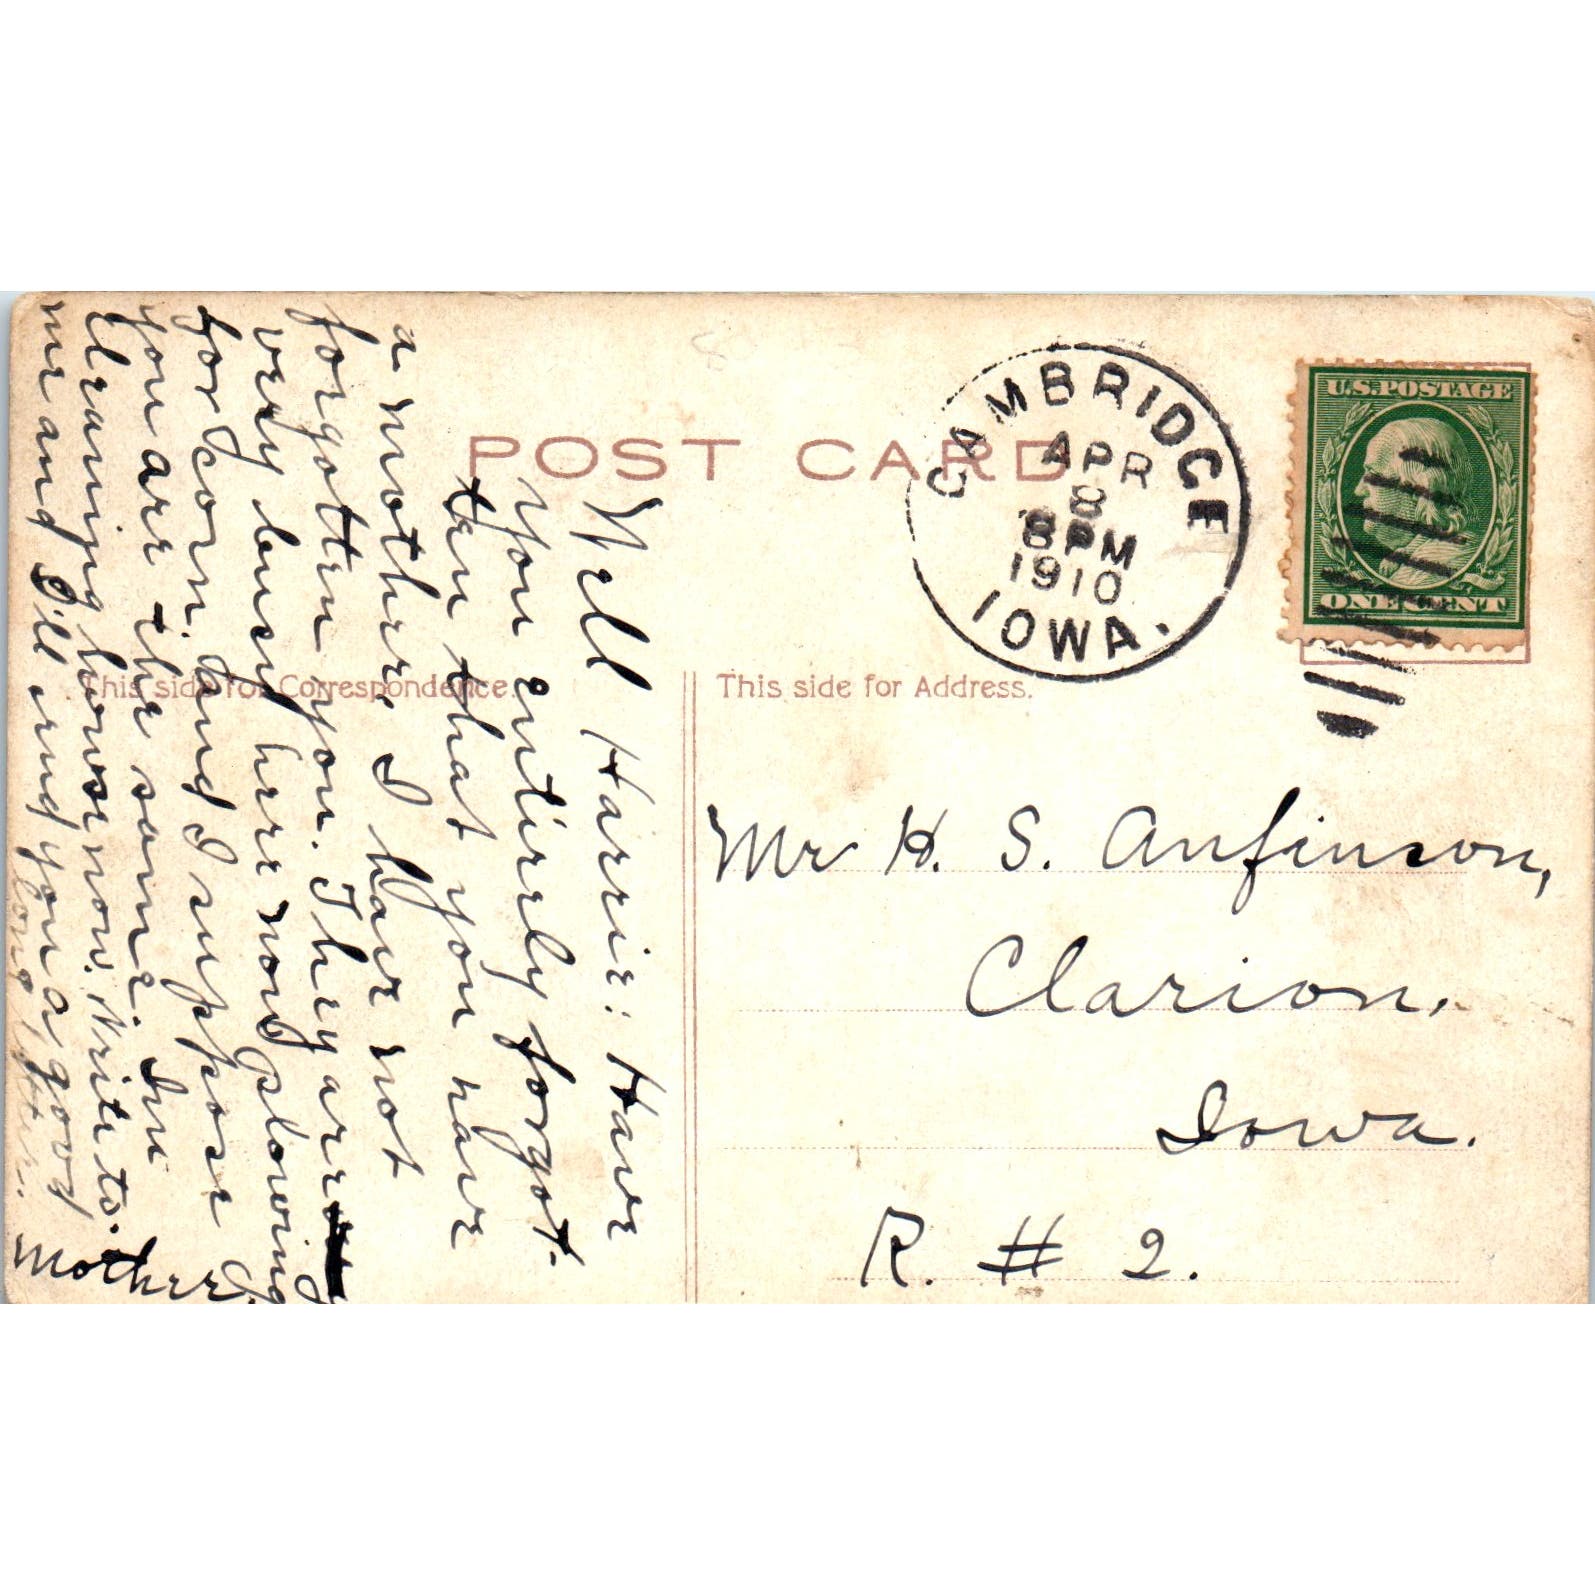 POST CARD
CAMBRIDGE
APR
8
8 PM
1910
IOWA.
U.S. POSTAGE
ONE CENT
This side for Correspondence.
This side for Address.
Well Harrie: Have
you entirely forgot-
ten that you have
a mother. I have not
forgotten you. They are
very busy here now plowing
for corn. and I suppose
you are the same. Im
cleaning house now. Write to
me and I'll send you a good
long letter.
Mother
Mr H. S. Anfinson,
Clarion,
Iowa.
R. # 2.